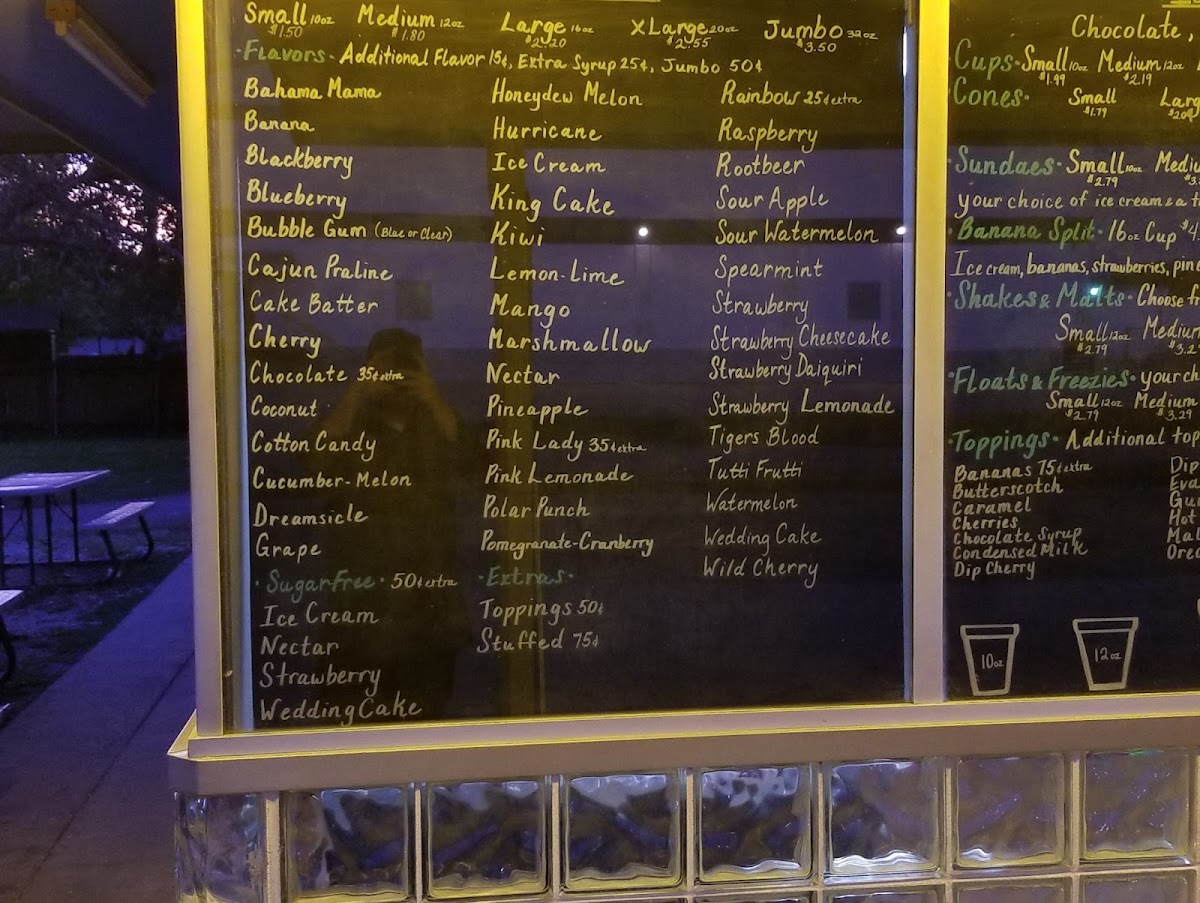 Small 10oz Medium 12oz Large 16oz XLarge 20oz Jumbo 32oz
$1.50 $1.80 $2.20 $2.55 $3.50
·Flavors· Additional Flavor 15¢, Extra Syrup 25¢, Jumbo 50¢
Bahama Mama
Banana
Blackberry
Blueberry
Bubble Gum (Blue or Clear)
Cajun Praline
Cake Batter
Cherry
Chocolate 35¢ extra
Coconut
Cotton Candy
Cucumber-Melon
Dreamsicle
Grape
·SugarFree· 50¢ extra
Ice Cream
Nectar
Strawberry
Wedding Cake
Honeydew Melon
Hurricane
Ice Cream
King Cake
Kiwi
Lemon-Lime
Mango
Marshmallow
Nectar
Pineapple
Pink Lady 35¢ extra
Pink Lemonade
Polar Punch
Pomegranate-Cranberry
·Extras·
Toppings 50¢
Stuffed 75¢
Rainbow 25¢ extra
Raspberry
Rootbeer
Sour Apple
Sour Watermelon
Spearmint
Strawberry
Strawberry Cheesecake
Strawberry Daiquiri
Strawberry Lemonade
Tigers Blood
Tutti Frutti
Watermelon
Wedding Cake
Wild Cherry
Chocolate,
Cups· Small 10oz Medium 12oz
$1.99 $2.19
Cones· Small
$1.79
·Sundaes· Small 10oz
$2.79
your choice of ice cream & a
·Banana Split· 16oz Cup
Ice cream, bananas, strawberries,
·Shakes & Malts· Choose
Small 12oz Medium
$2.79
·Floats & Freezies· your
Small 12oz Medium
$2.79 $3.29
·Toppings· Additional
Bananas 75¢ extra
Butterscotch
Caramel
Cherries
Chocolate Syrup
Condensed Milk
Dip Cherry
Dip
Hot
10oz
12oz